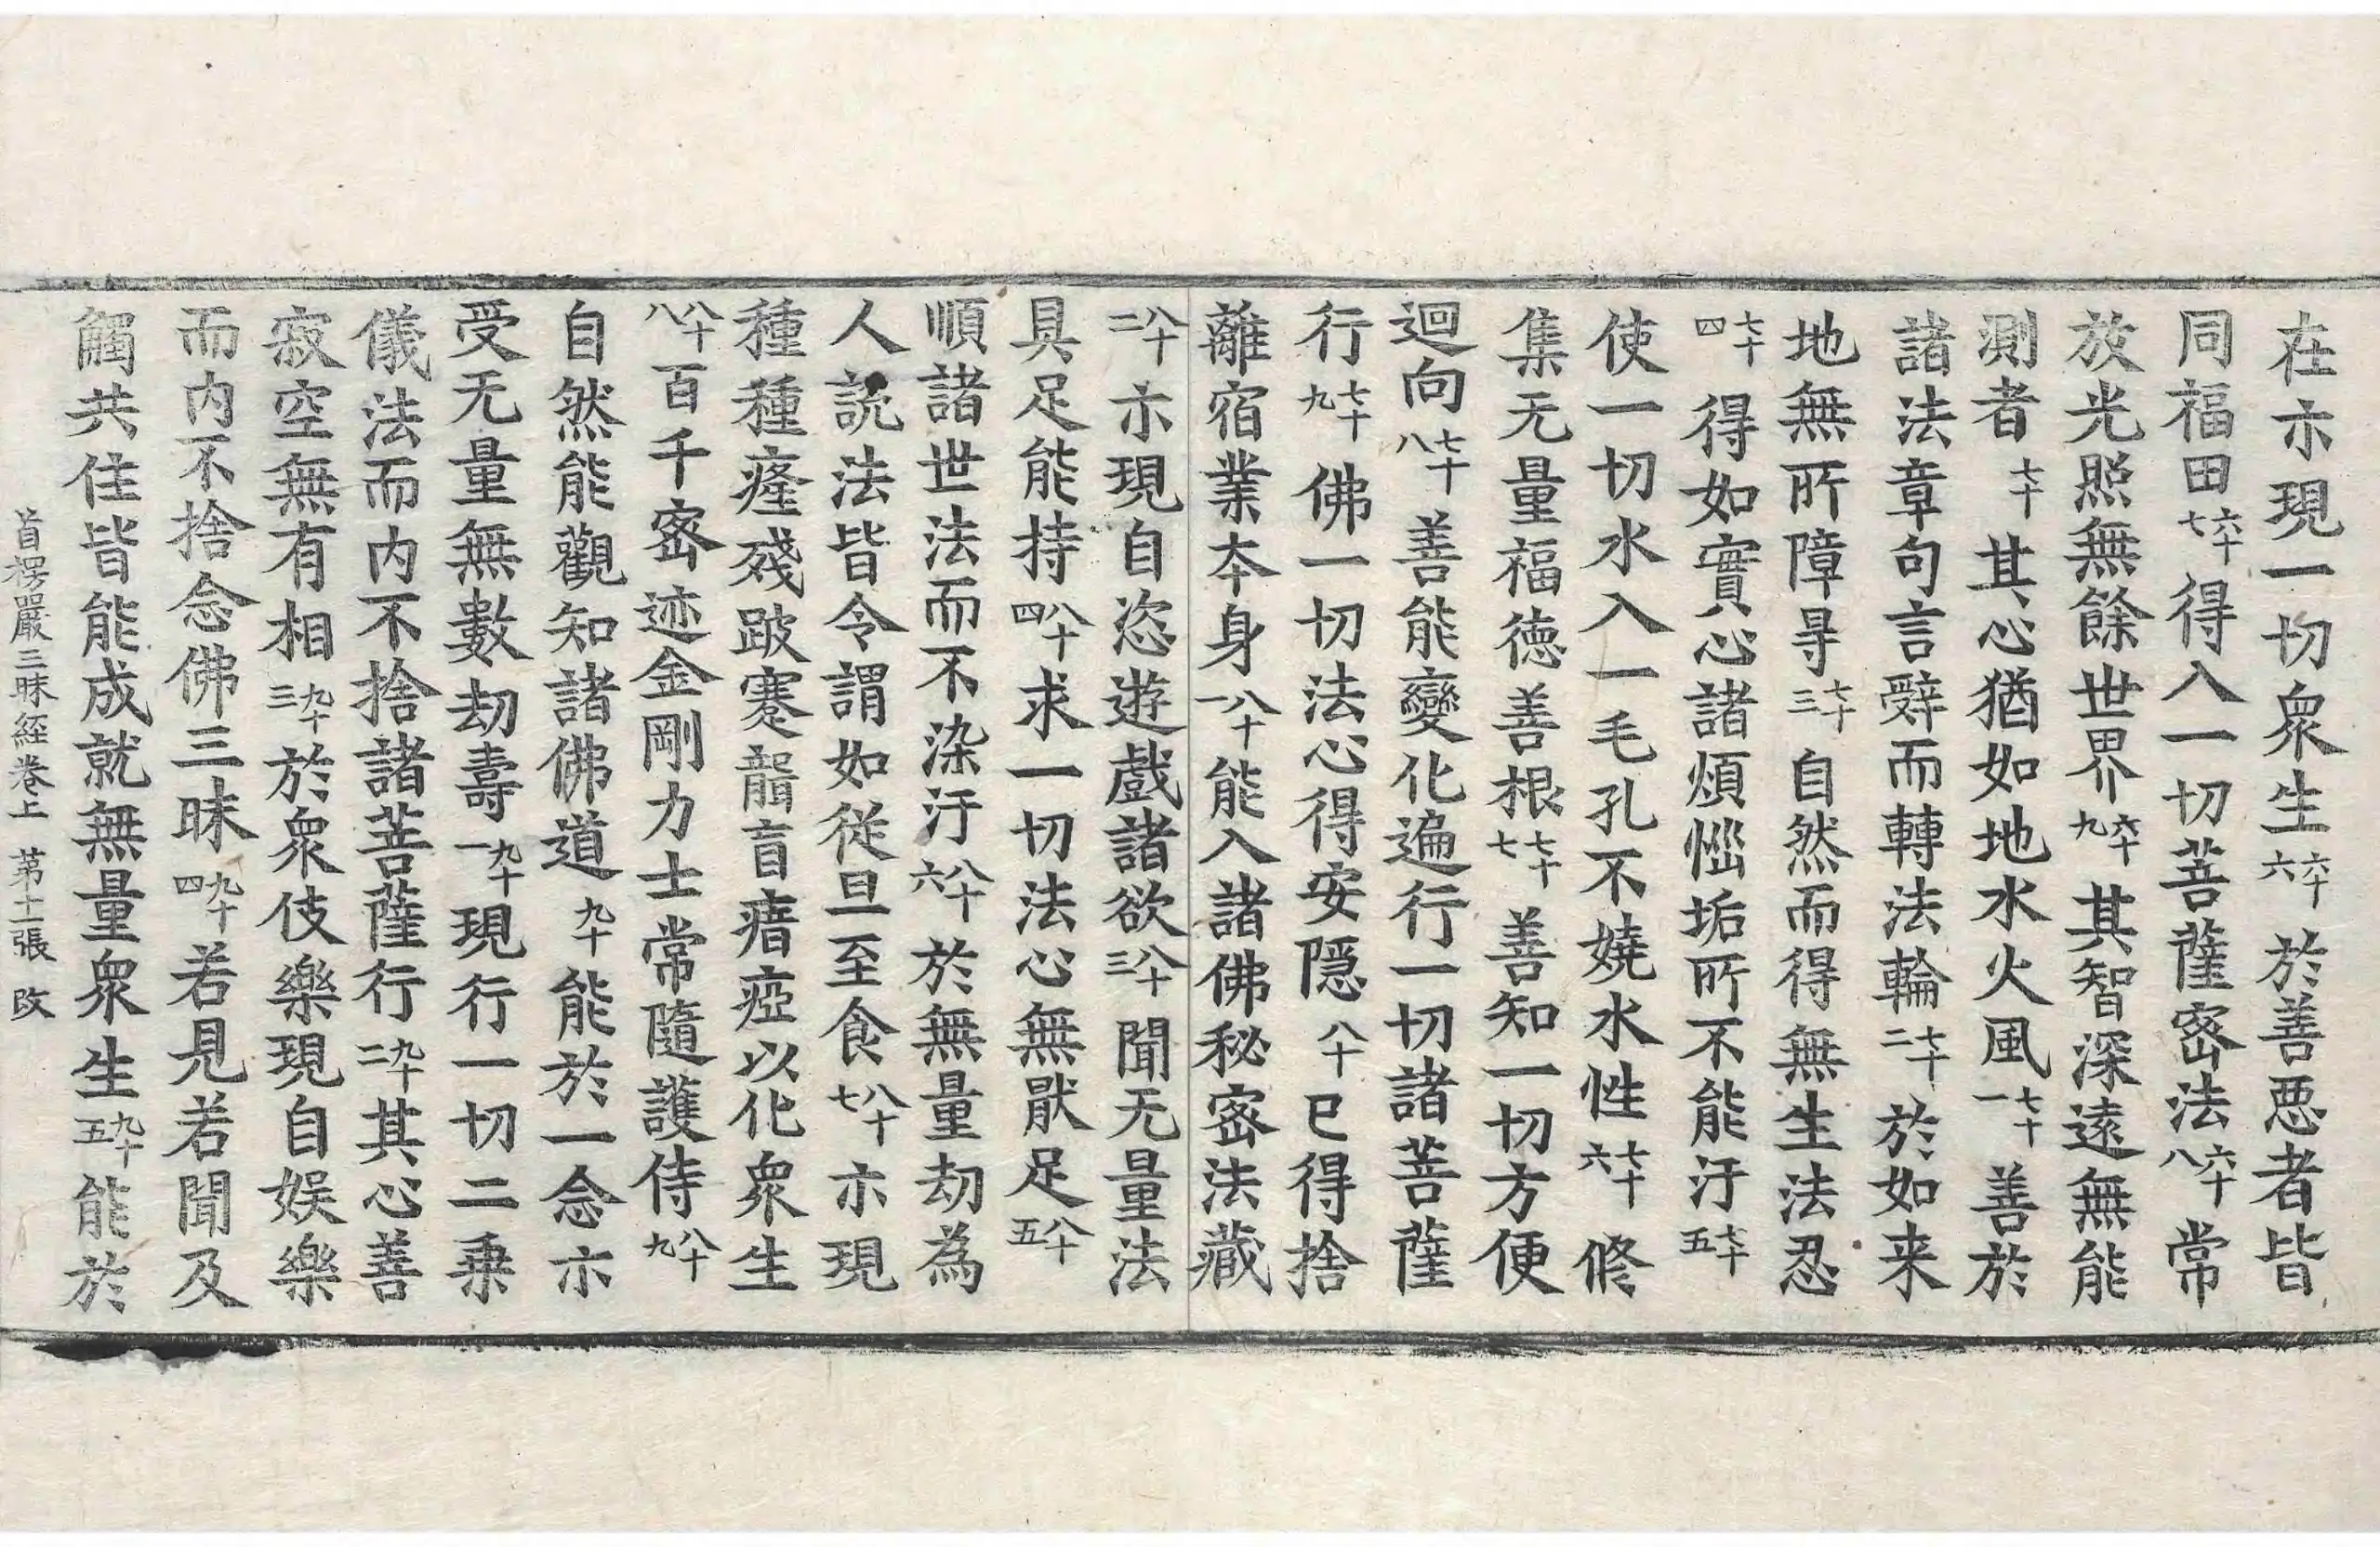 在示現一切衆生六十六於善悪者皆
同福田六十七得入一切菩薩密法六十八常
放光照無餘世界六十九其智深遠無能
測者七十其心猶如地水火風七十一善於
諸法章句言辭而轉法輪七十二於如来
地無所障㝵七十三自然而得無生法忍
七十四得如實心諸煩惱垢所不能汙七十五
使一切水入一毛孔不嬈水性七十六修
集无量福徳善根七十七善知一切方便
迴向七十八善能變化遍行一切諸菩薩
行七十九佛一切法心得安隱八十已得捨
離宿業夲身八十一能入諸佛秘密法藏
八十二示現自恣遊戲諸欲八十三聞无量法
具足能持八十四求一切法心無厭足八十五
順諸世法而不染汙八十六於無量劫為
人說法皆令謂如從旦至食八十七示現
種種癃殘跛蹇聾盲瘖瘂以化衆生
八十八百千密迹金剛力士常隨護侍八十九
自然能觀知諸佛道九十能於一念示
受无量無數劫壽九十一現行一切二乗
儀法而内不捨諸菩薩行九十二其心善
寂空無有相九十三於衆伎樂現自娛樂
而内不捨念佛三昧九十四若見若聞及
觸共住皆能成就無量衆生九十五能於
首楞嚴三昧経卷上 苐十一張 改